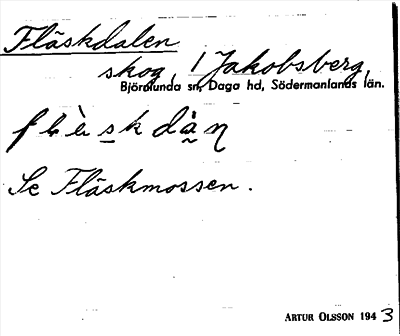 Fläskdalen
skog, i Jakobsberg,
Björnlunda sn, Daga hd, Södermanlands län.
flèskdàn
Se Fläskmossen.
ARTUR OLSSON 1943